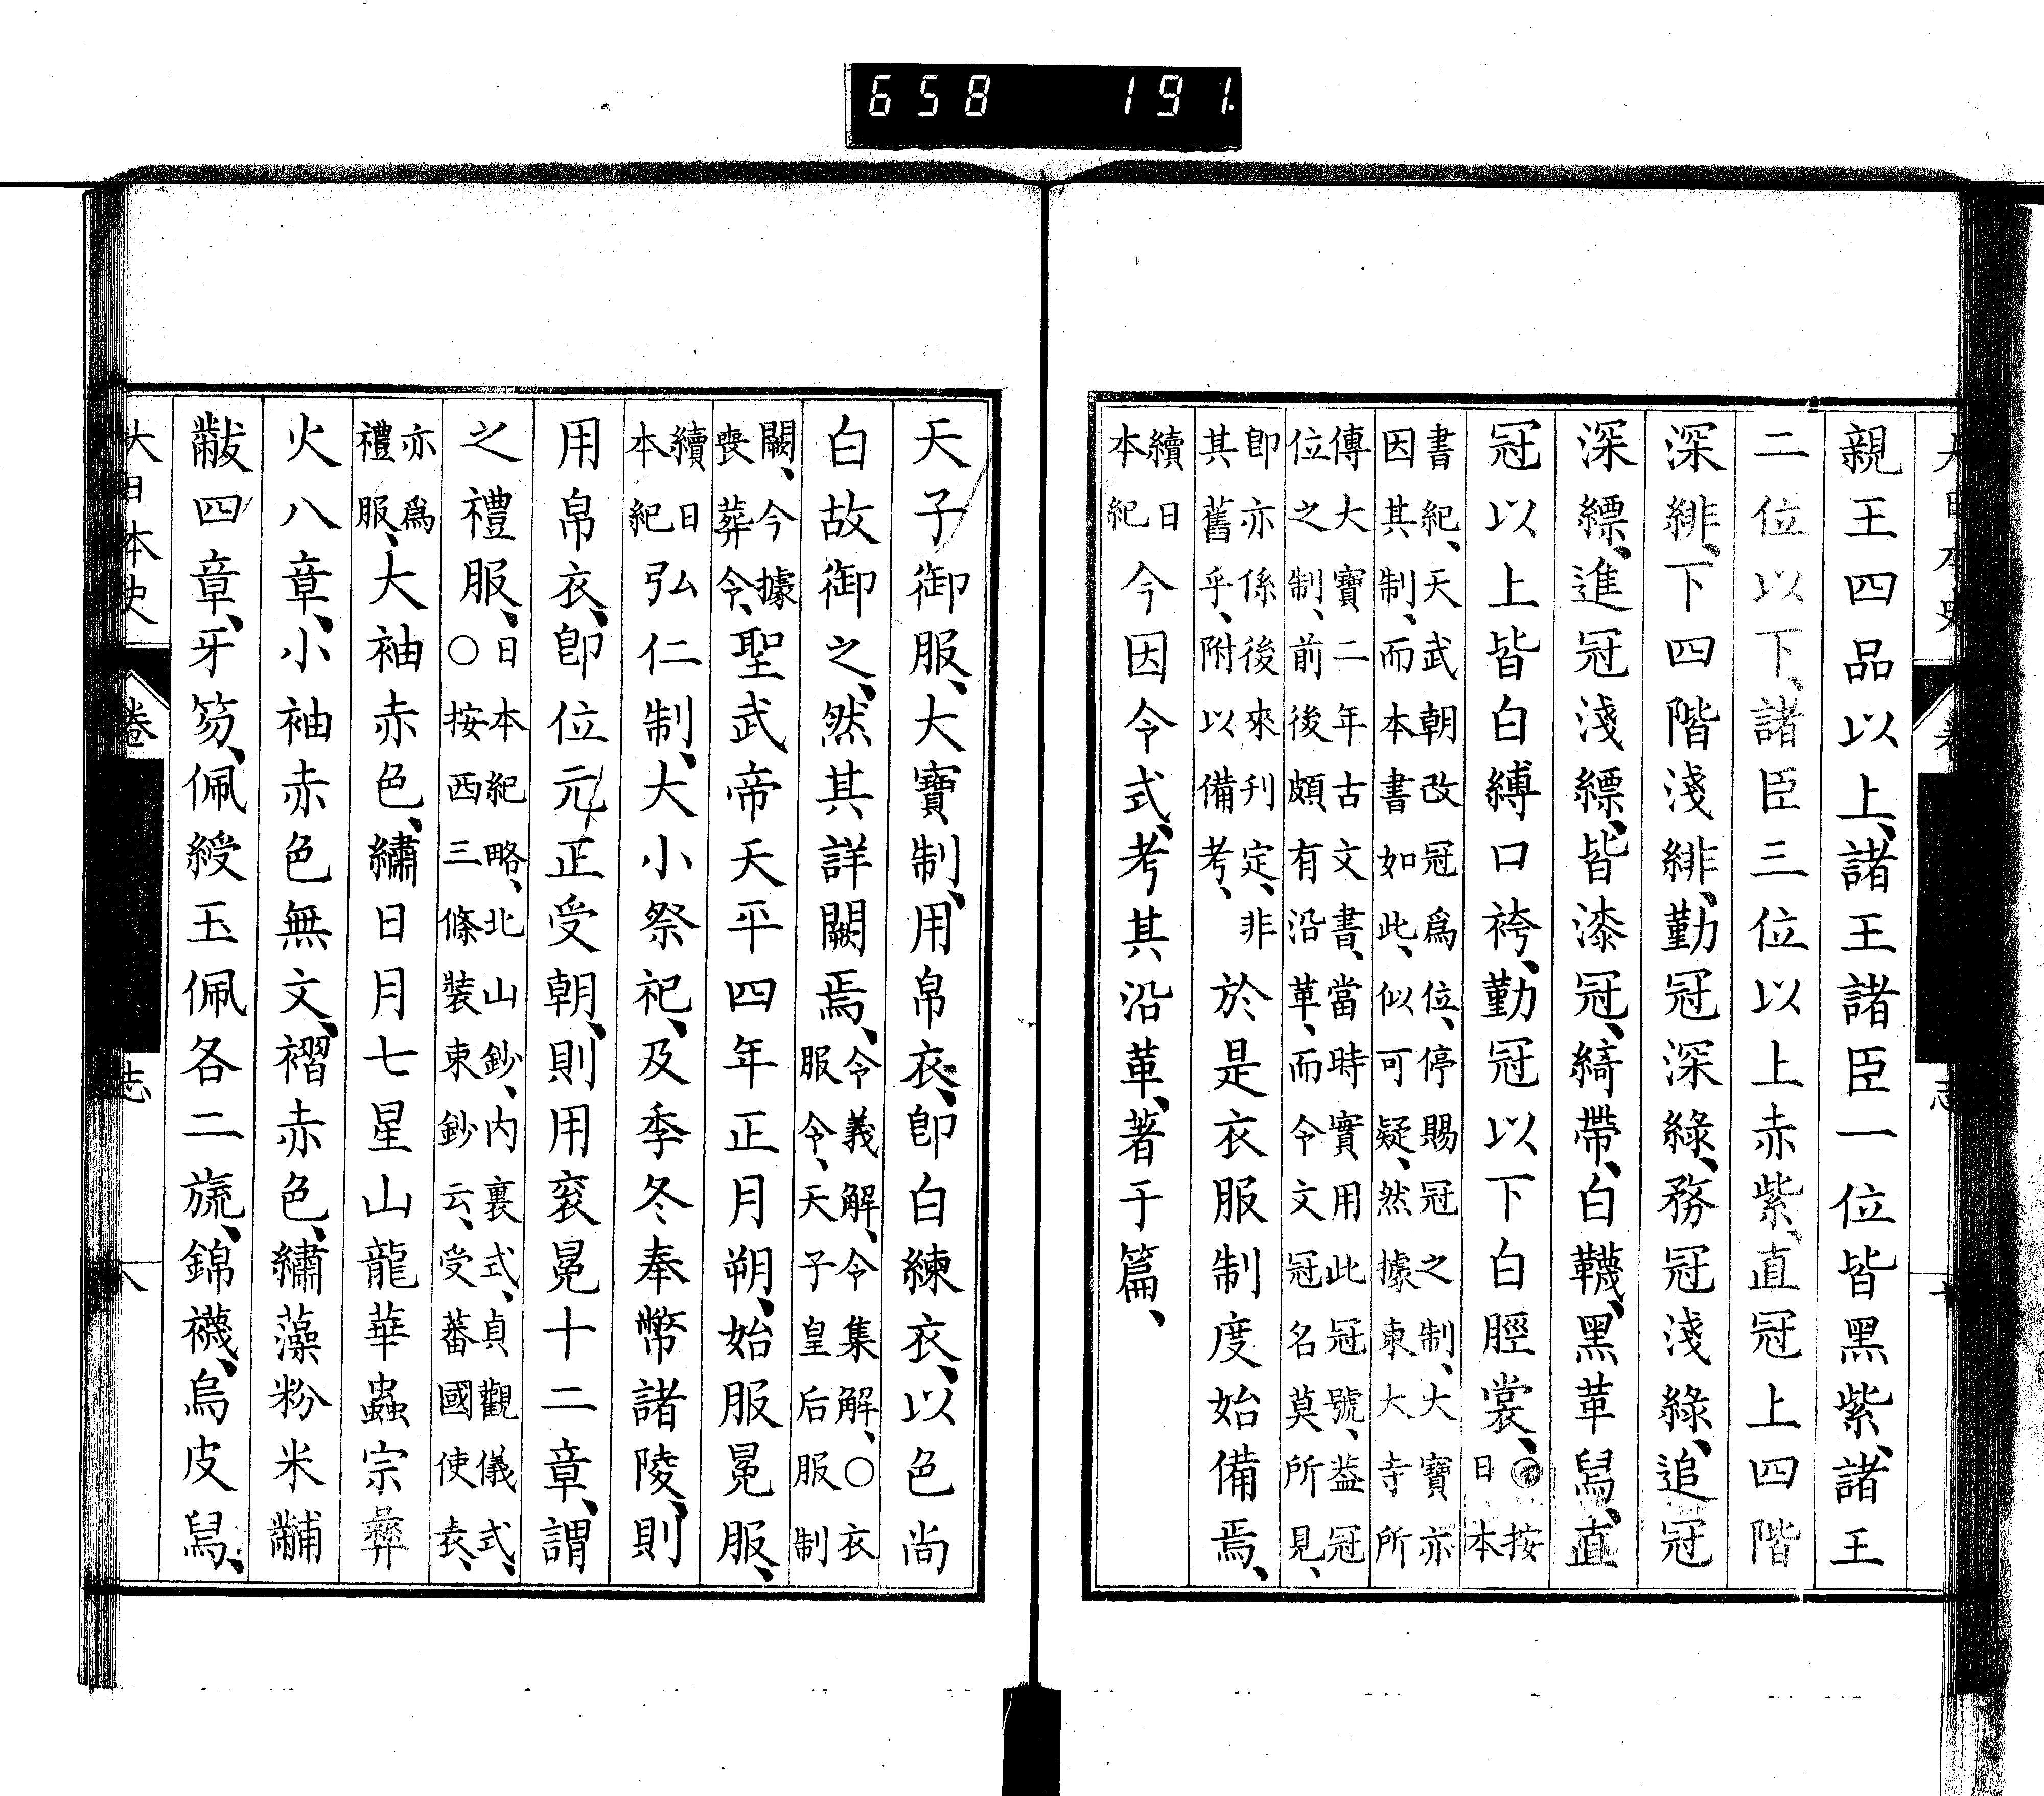 658 191.
大日本史
志
親王四品以上、諸王諸臣一位皆黑紫、諸王
二位以下、諸臣三位以上赤紫、直冠上四階
深緋、下四階淺緋、勤冠深綠、務冠淺綠、追冠
深縹、進冠淺縹、皆漆冠、綺帶、白韈、黑革舄、直
冠以上皆白縛口袴、勤冠以下白脛裳、按日本
書紀、天武朝改冠爲位、停賜冠之制、大寶亦
因其制、而本書如此、似可疑、然據東大寺所
傳大寶二年古文書、當時實用此冠號、蓋冠
位之制、前後頗有沿革、而令文冠名莫所見、
卽亦係後來刊定、非
其舊乎、附以備考、於是衣服制度始備焉、
續日
本紀今因令式、考其沿革、著于篇、
天子御服、大寶制、用帛衣、卽白練衣、以色尚
白故御之、然其詳闕焉、令義解、令集解、○衣
服令、天子皇后服制
闕、今據
喪葬令、聖武帝天平四年正月朔、始服冕服、
續日
本紀弘仁制、大小祭祀、及季冬奉幣諸陵、則
用帛衣、卽位元正受朝、則用袞冕十二章、謂
之禮服、日本紀略、北山鈔、內裏式、貞觀儀式、
○按西三條裝束鈔云、受蕃國使表、
亦爲
禮服、大袖赤色、繡日月七星山龍華蟲宗彝
火八章、小袖赤色無文、褶赤色、繡藻粉米黼
黻四章、牙笏、佩綬玉佩各二旒、錦襪、烏皮舄、
大日本史
卷
志
八